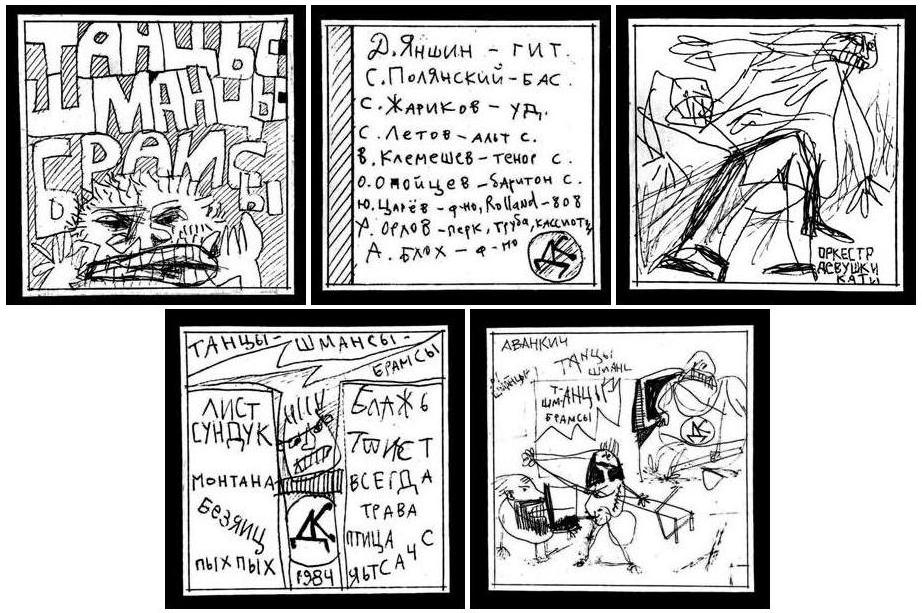 ТАНЦЫ
ШМАНЦЫ
БРАМСЫ
Д. ЯНШИН – ГИТ.
С. ПОЛЯНСКИЙ – БАС.
С. ЖАРИКОВ – УД.
С. ЛЕТОВ – АЛЬТ С.
В. КЛЕМЕШЕВ – ТЕНОР С.
О. ОПОЙЦЕВ – БАРИТОН С.
Ю. ЦАРЁВ – Ф-НО, Rolland – 808
А. ОРЛОВ – ПЕРК, ТРУБА,
А. БЛОХ – Ф-НО
ДК
ОРКЕСТР
ДЕВУШКИ
КАТИ
ТАНЦЫ-ШМАНСЫ-
БРАМСЫ
ЛИСТ
СУНДУК
МОНТАНА
БЕЗЯИЦ
ПЫХ ПЫХ
БЛАЖЬ
ТВИСТ
ВСЕГДА
ТРАВА
ПТИЦА
ДК
1984
АВАНКИЧ
ТАНЦЫ
ШМАНЦ
Т-АНЦЫ
ШМ-АНЦЫ
БРАМСЫ
ДК